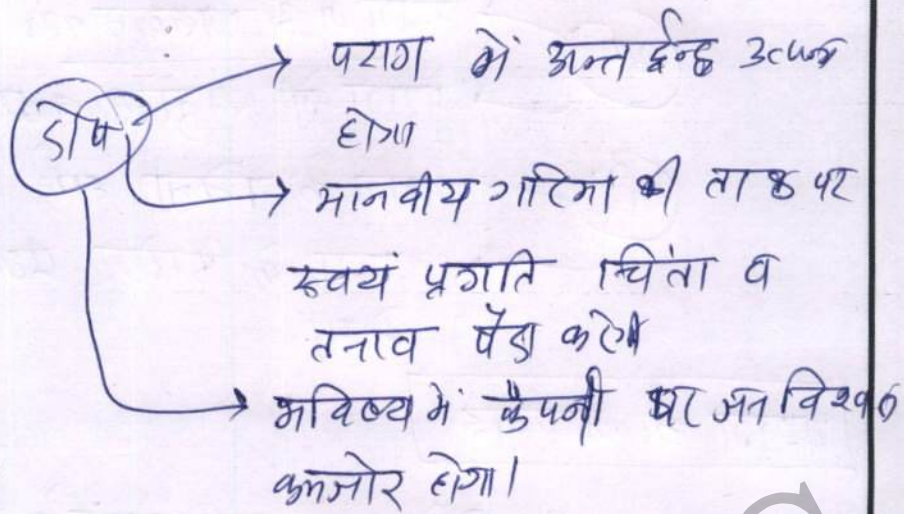 दोष
पराग में अन्तर्द्वन्द्व उत्पन्न
होगा
मानवीय गरिमा की ताक पर
स्वयं प्रगति चिंता व
तनाव पैदा करेगा
भविष्य में कंपनी पर जन विश्वास
कमजोर होगा।